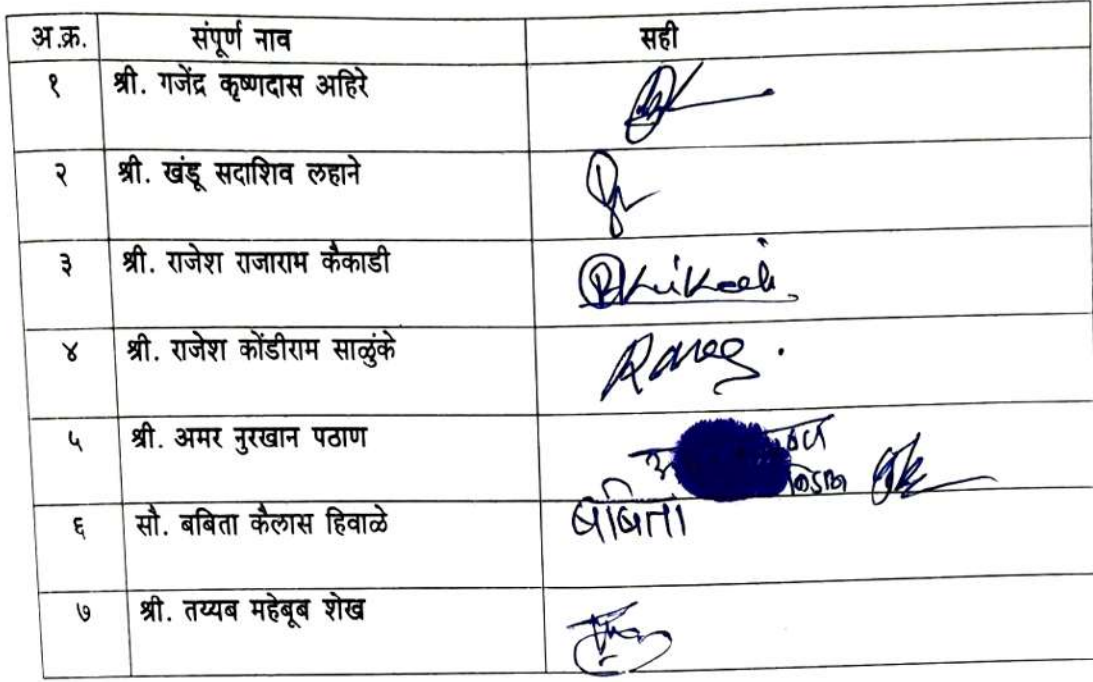 अ.क्र. संपूर्ण नाव सही
१ श्री. गजेंद्र कृष्णदास अहिरे
२ श्री. खंडू सदाशिव लहाने
३ श्री. राजेश राजाराम कैकाडी
४ श्री. राजेश कोंडीराम साळुंके
५ श्री. अमर नुरखान पठाण
६ सौ. बबिता कैलास हिवाळे बबिता
७ श्री. तय्यब महेबूब शेख